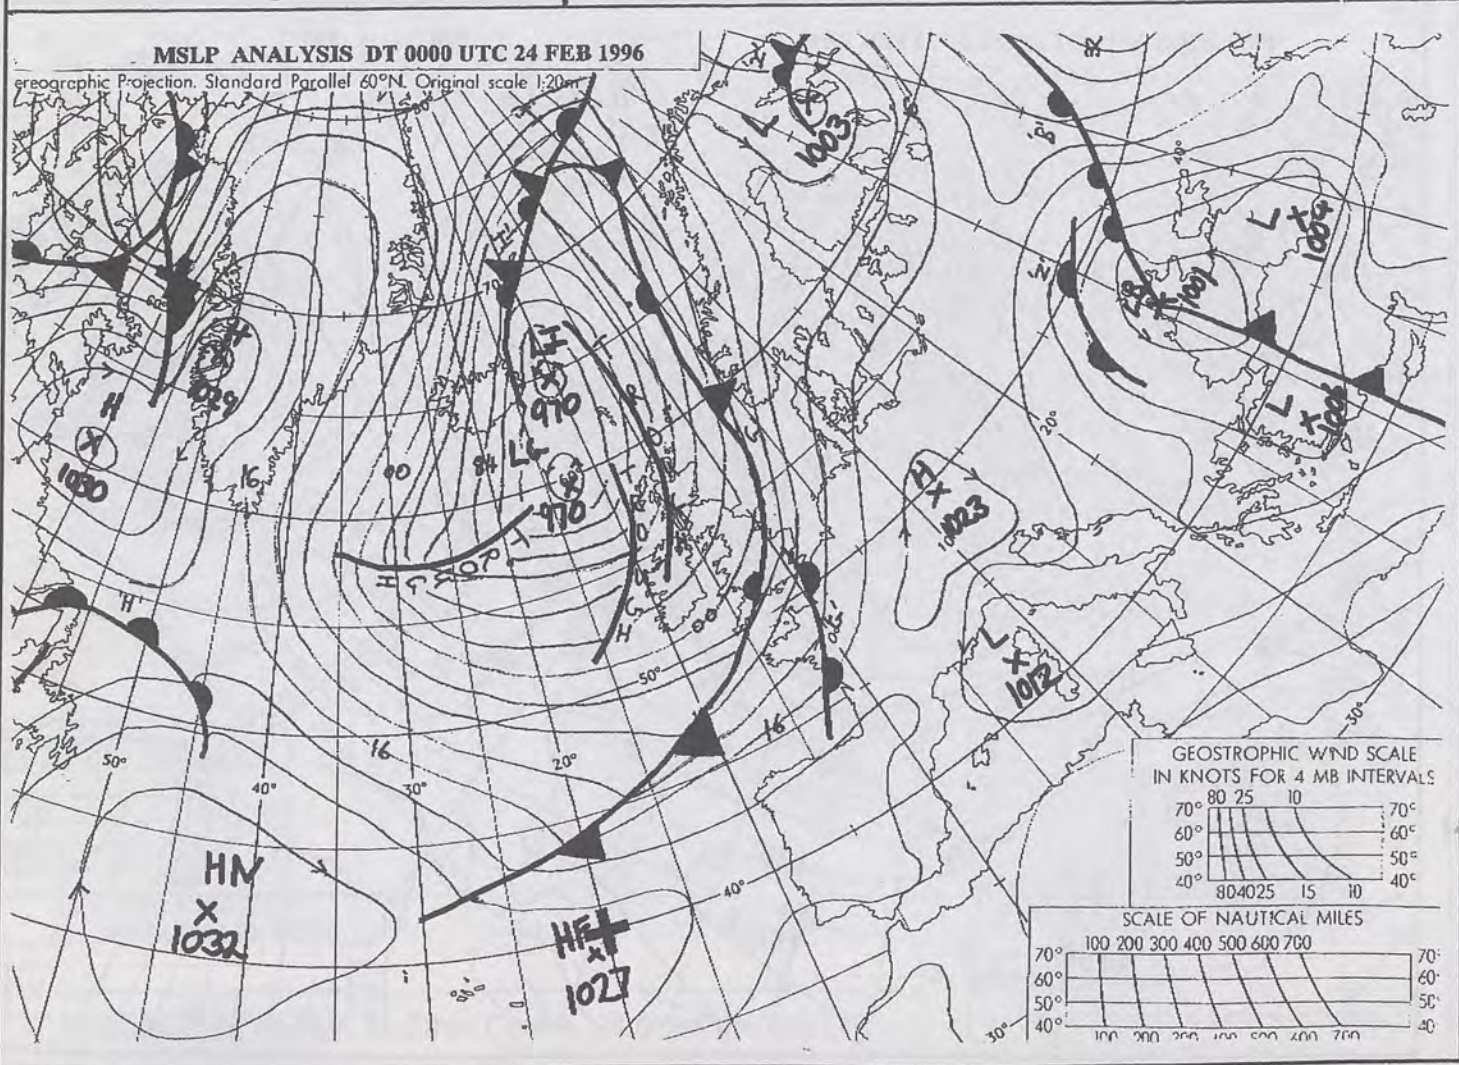 MSLP ANALYSIS DT 0000 UTC 24 FEB 1996
ereographic Projection. Standard Parallel 60°N. Original scale 1:20m
L
1003
'B'
40°
L
1004
'N'
LB
1007
L
1008
20°
H
1029
H
1030
16
'H'
70°
60°
LH
970
LG
970
00
84
TROUGH
TROUGH
TROUGH
H
1023
L
1012
'H'
00
50°
16
16
50°
40°
30°
20°
40°
30°
30°
HN
1032
HF
1027
GEOSTROPHIC WIND SCALE
IN KNOTS FOR 4 MB INTERVALS
80 25 10
70° 70°
60° 60°
50° 50°
40° 40°
80 40 25 15 10
SCALE OF NAUTICAL MILES
100 200 300 400 500 600 700
70° 70°
60° 60°
50° 50°
40° 40
100 200 300 400 500 600 700